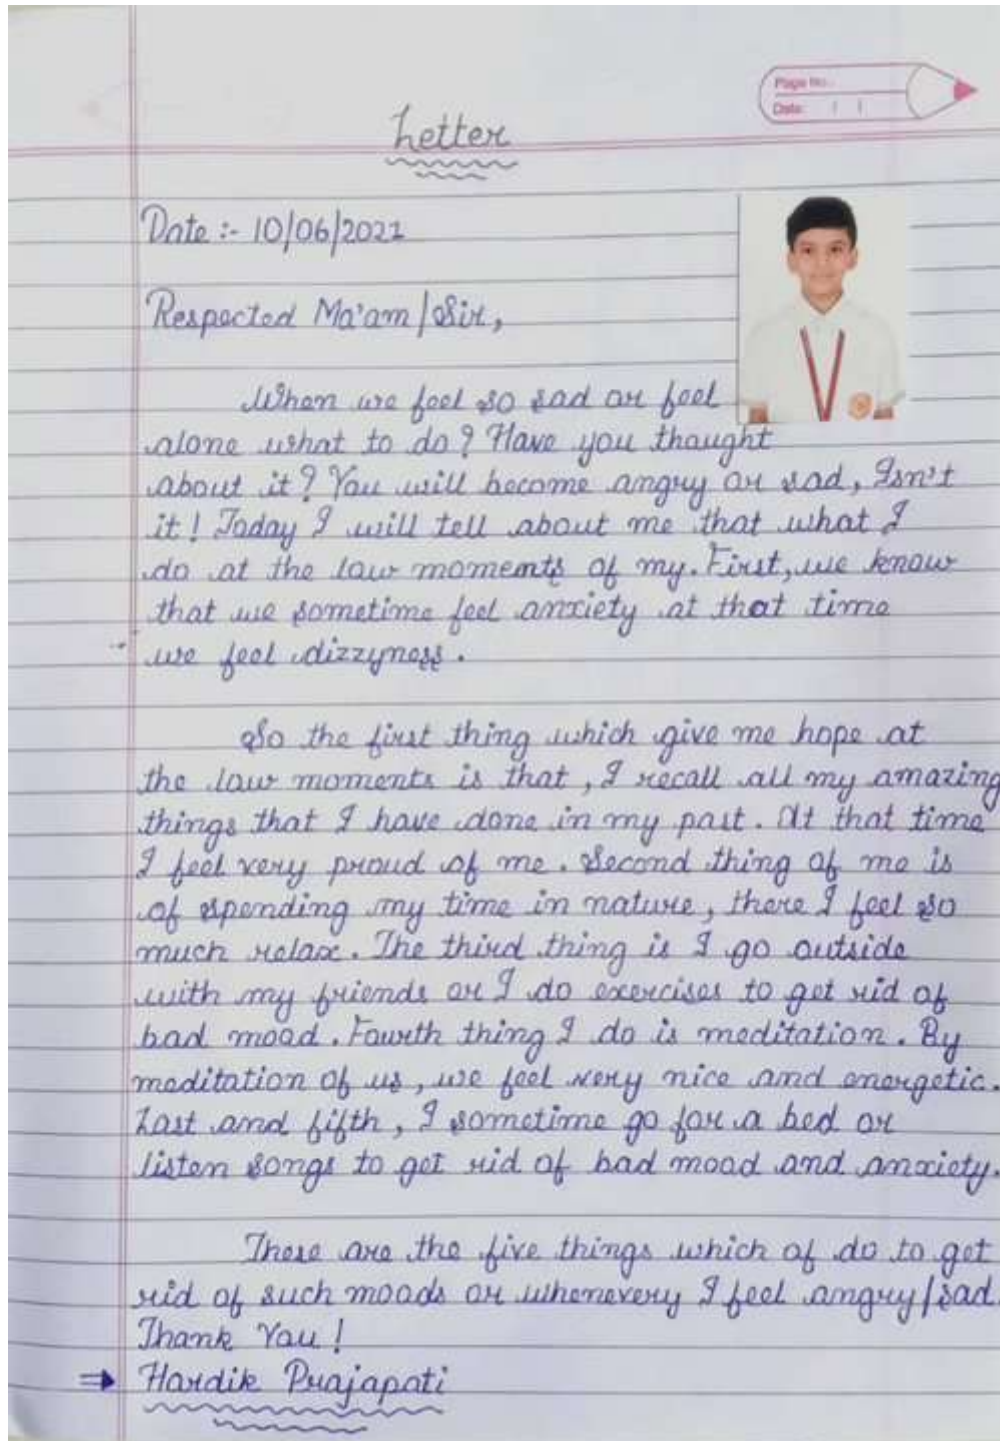 Page No.
Date: / /
Letter
Date :- 10/06/2021
Respected Ma'am/Sir,
When we feel so sad or feel
alone what to do? Have you thought
about it? You will become angry or sad, Isn't
it! Today I will tell about me that what I
do at the low moments of my. First, we know
that we sometime feel anxiety at that time
we feel dizzyness.
So the first thing which give me hope at
the low moments is that, I recall all my amazing
things that I have done in my past. At that time
I feel very proud of me. Second thing of me is
of spending my time in nature, there I feel so
much relax. The third thing is I go outside
with my friends or I do exercises to get rid of
bad mood. Fourth thing I do is meditation. By
meditation of us, we feel very nice and energetic.
Last and fifth, I sometime go for a bed or
listen songs to get rid of bad mood and anxiety.
These are the five things which of do to get
rid of such moods or whenevery I feel angry/sad.
Thank You!
⇒ Hardik Prajapati